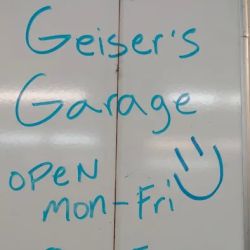 Geiser's
Garage
OPEN
Mon-Fri